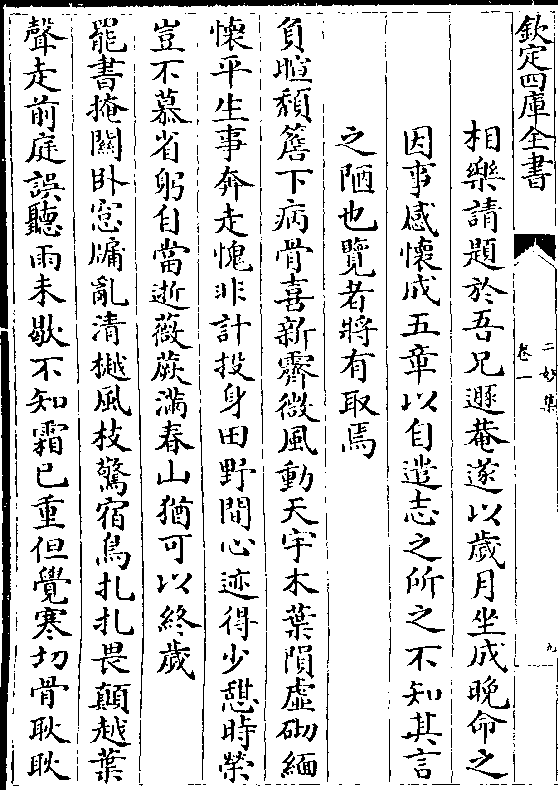 欽定四庫全書
二妙集
卷一
九
相樂請題於吾兄遯菴遂以歲月坐成晚命之
因事感懷成五章以自遣志之所之不知其言
之陋也覽者將有取焉
負暄頽簷下病骨喜新霽微風動天宇木葉隕虛砌緬
懷平生事奔走愧非計投身田野間心迹得少憇時榮
豈不慕省躬自當逝薇蕨滿春山猶可以終歲
罷書掩關卧窓牖亂清樾風枝驚宿鳥扎扎畏顛越葉
聲走前庭誤聽雨未歇不知霜已重但覺寒切骨耿耿